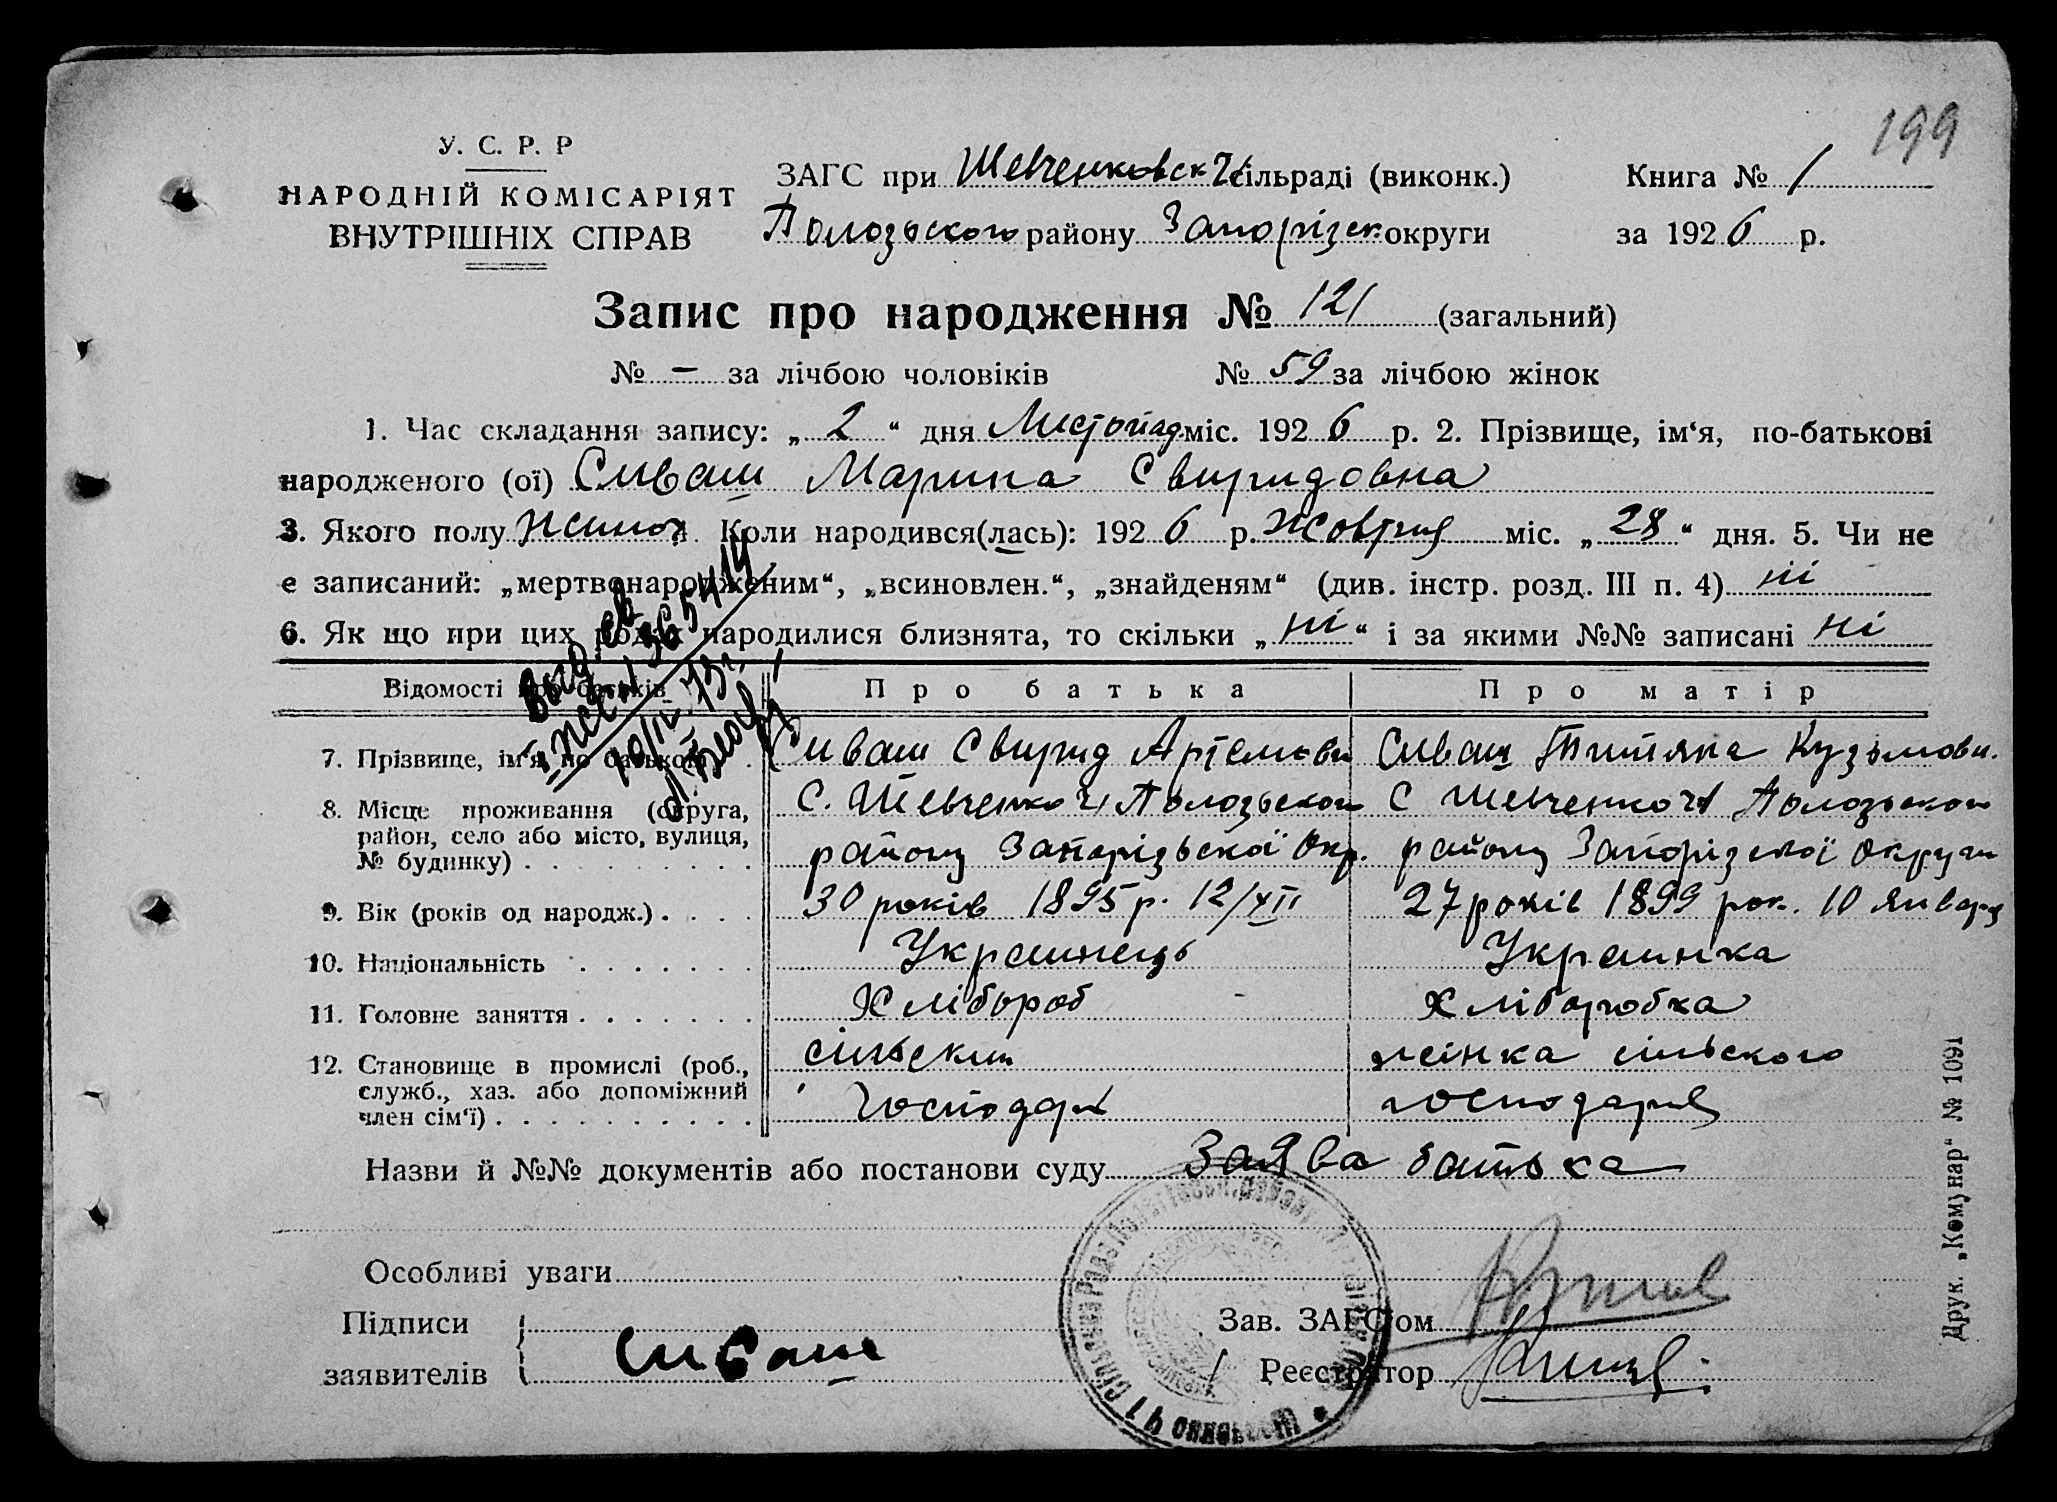 199
У. С. Р. Р
НАРОДНІЙ КОМІСАРІЯТ
ВНУТРІШНІХ СПРАВ
ЗАГС при Шевченковск Ч1 сільраді (виконк.)
Полозьского району Запорізьк. округи
Книга № 1
за 1926 р.
Запис про народження № 121 (загальний)
№ — за лічбою чоловіків № 59 за лічбою жінок
1. Час складання запису: „ 2 “ дня Листопад міс. 1926 р. 2. Прізвище, ім‘я, по-батькові
народженого (ої) Сиваш Марина Свиридовна
3. Якого полу жиноч. Коли народився(лась): 1926 р. жовтня міс. „ 28 “ дня. 5. Чи не
є записаний: „мертвонародженим“, „всиновлен.“, „знайденям“ (див. інстр. розд. III п. 4) ні
6. Як що при цих родах народилися близнята, то скільки „ ні “ і за якими №№ записані ні
Відомості про батьків
Про батька
Про матір
7. Прізвище, ім‘я по батькові .
Сиваш Свирид Артемови
Сиваш Титяна Кузьмовн.
8. Місце проживання (округа,
район, село або місто, вулиця,
№ будинку)
С. Шевченко Ч1 Полозьского
району Запорізьскої Окр.
С Шевченко Ч1 Полозьского
району Запорізскої Округи
9. Вік (років од народж.)
30 років 1895 р. 12/XII
27 років 1899 рок. 10 Января
10. Національність
Украинець
Украинка
11. Головне заняття
Хлібороб
Хлібогобка
12. Становище в промислі (роб.,
служб., хаз. або допоміжний
член сім‘ї)
сільский
господарь
жінка сільского
господаря
Назви й №№ документів або постанови суду Заява батька
Особливі уваги
Підписи
заявителів
Сиваш
Зав. ЗАГС‘ом
Реєстратор
Друк. „Комунар“ № 1091
Выд. св
10/IV 73г.